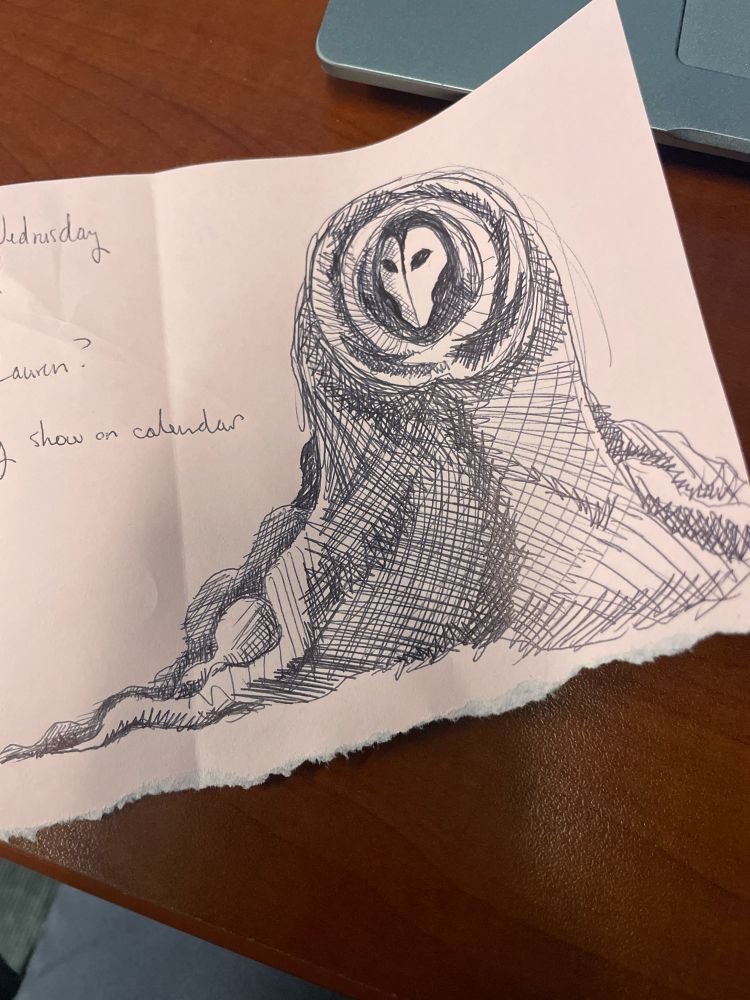 Wednesday
Lauren?
show on calendar